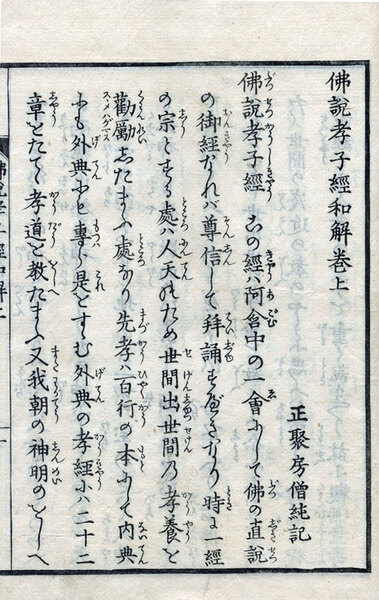 佛說孝子經和解巻上
正聚房僧純記
佛說孝子經 この經ハ阿含中の一會にして佛の直說
の御經なれバ尊信して拜誦すべきなり 時に一經
の宗とする處ハ人天のため世間出世間乃孝養を
勸勵したまふ處なり先孝ハ百行の本にして内典
にも外典にも專ら是をすゝむ外典の孝經にハ二十二
章をたてゝ孝道を教たまふ又我朝の神明のをしへ